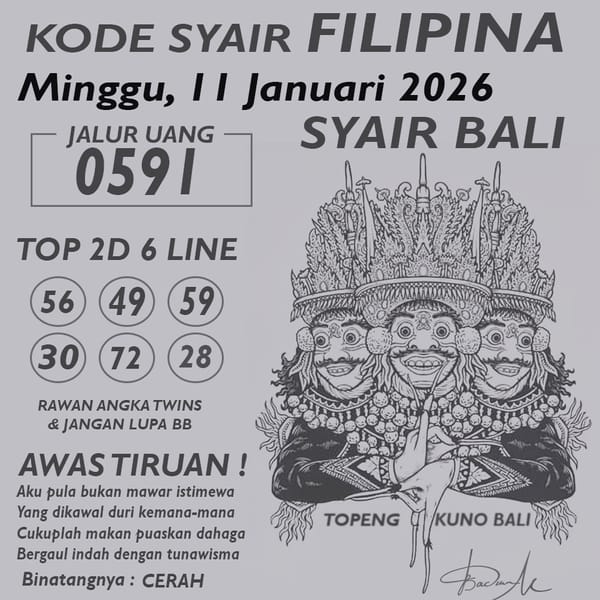 KODE SYAIR FILIPINA
Minggu, 11 Januari 2026
SYAIR BALI
JALUR UANG
0591
TOP 2D 6 LINE
56 49 59
30 72 28
RAWAN ANGKA TWINS
& JANGAN LUPA BB
AWAS TIRUAN !
Aku pula bukan mawar istimewa
Yang dikawal duri kemana-mana
Cukuplah makan puaskan dahaga
Bergaul indah dengan tunawisma
Binatangnya : CERAH
TOPENG KUNO BALI